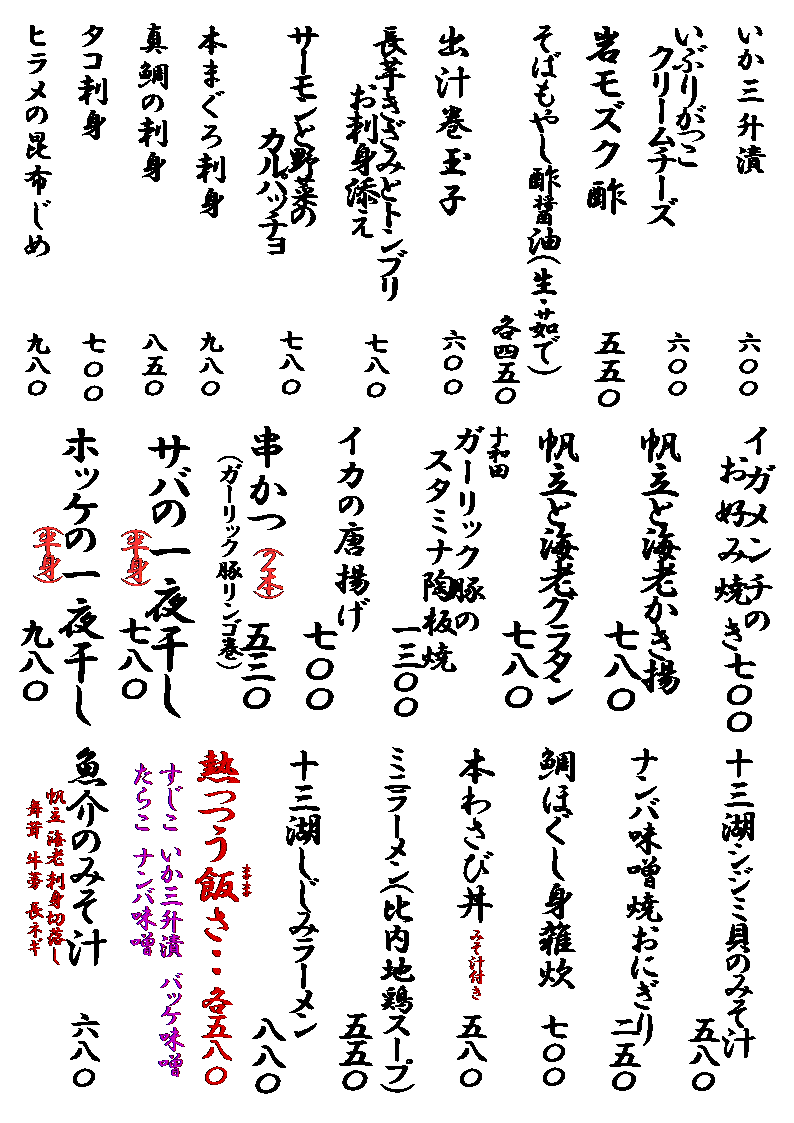 いか三升漬
六〇〇
いぶりがっこ
クリームチーズ
六〇〇
岩モズク酢
五五〇
そばもやし酢醤油(生・茹で)
各四五〇
出汁巻玉子
六〇〇
長芋きざみとトンブリ
お刺身添え
七八〇
サーモンと野菜の
カルパッチョ
七八〇
本まぐろ刺身
九八〇
真鯛の刺身
八五〇
タコ刺身
七〇〇
ヒラメの昆布じめ
九八〇
イガメンチの
お好み焼き七〇〇
帆立と海老かき揚
七八〇
帆立と海老グラタン
七八〇
十和田
ガーリック豚の
スタミナ陶板焼
一三〇〇
イカの唐揚げ
七〇〇
串かつ(2本)
(ガーリック豚リンゴ巻)
五三〇
サバの一夜干し
(半身)
七八〇
ホッケの一夜干し
(半身)
九八〇
十三湖シジミ貝のみそ汁
五八〇
ナンバ味噌焼おにぎり
二五〇
鯛ほぐし身雑炊
七〇〇
本わさび丼
みそ汁付き
五八〇
ミニラーメン(比内地鶏スープ)
五五〇
十三湖しじみラーメン
八八〇
熱っつう飯さ‥各五八〇
まま
すじこ いか三升漬 バッケ味噌
たらこ ナンバ味噌
魚介のみそ汁
帆立 海老 刺身切落し
舞茸 牛蒡 長ネギ
六八〇